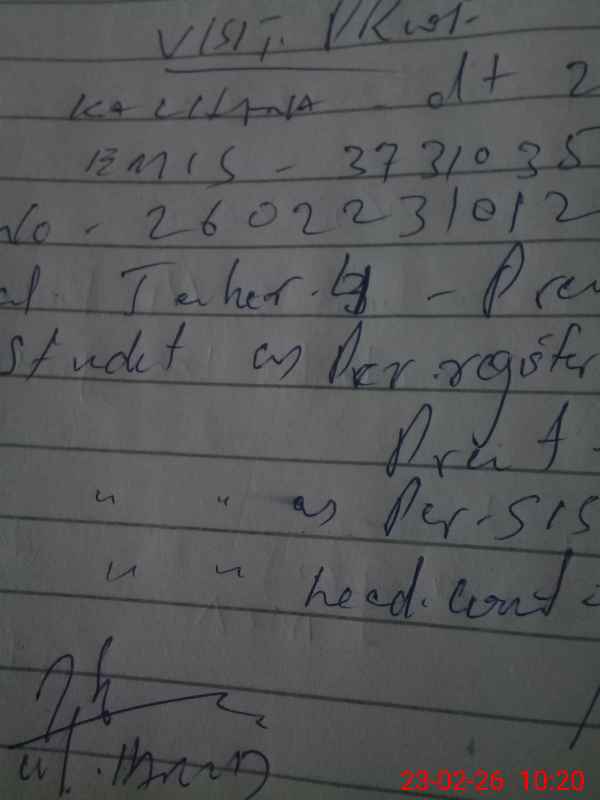 VISIT. PRust.
KALLHANA - dt 2
EMIS - 3731035
No - 2602231012
al. Teaher. 4 - Pren
Studet as Per. register
Preint.
" " as Per - SIS
" " head. Count =
23-02-26 10:20